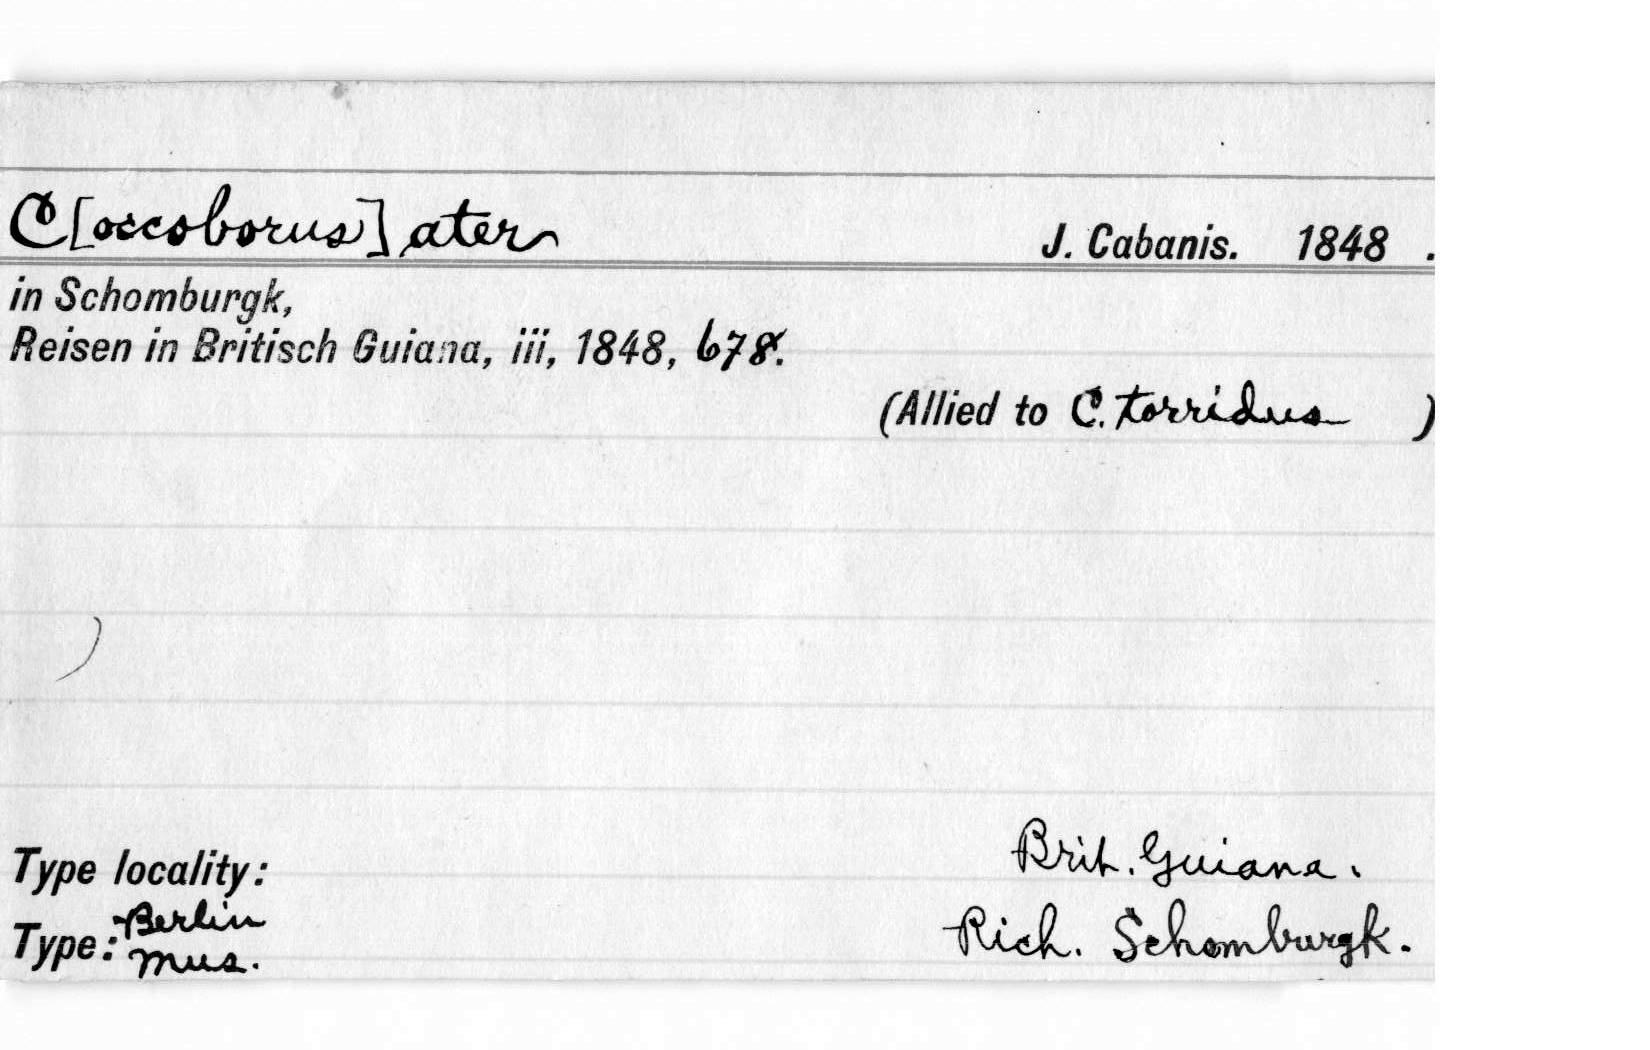 C[occoborus] ater J. Cabanis. 1848 .
in Schomburgk,
Reisen in Britisch Guiana, iii, 1848, 678.
(Allied to C. torridus )
)
Type locality: Brit. Guiana.
Type: Berlin Mus. Rich. Schomburgk.